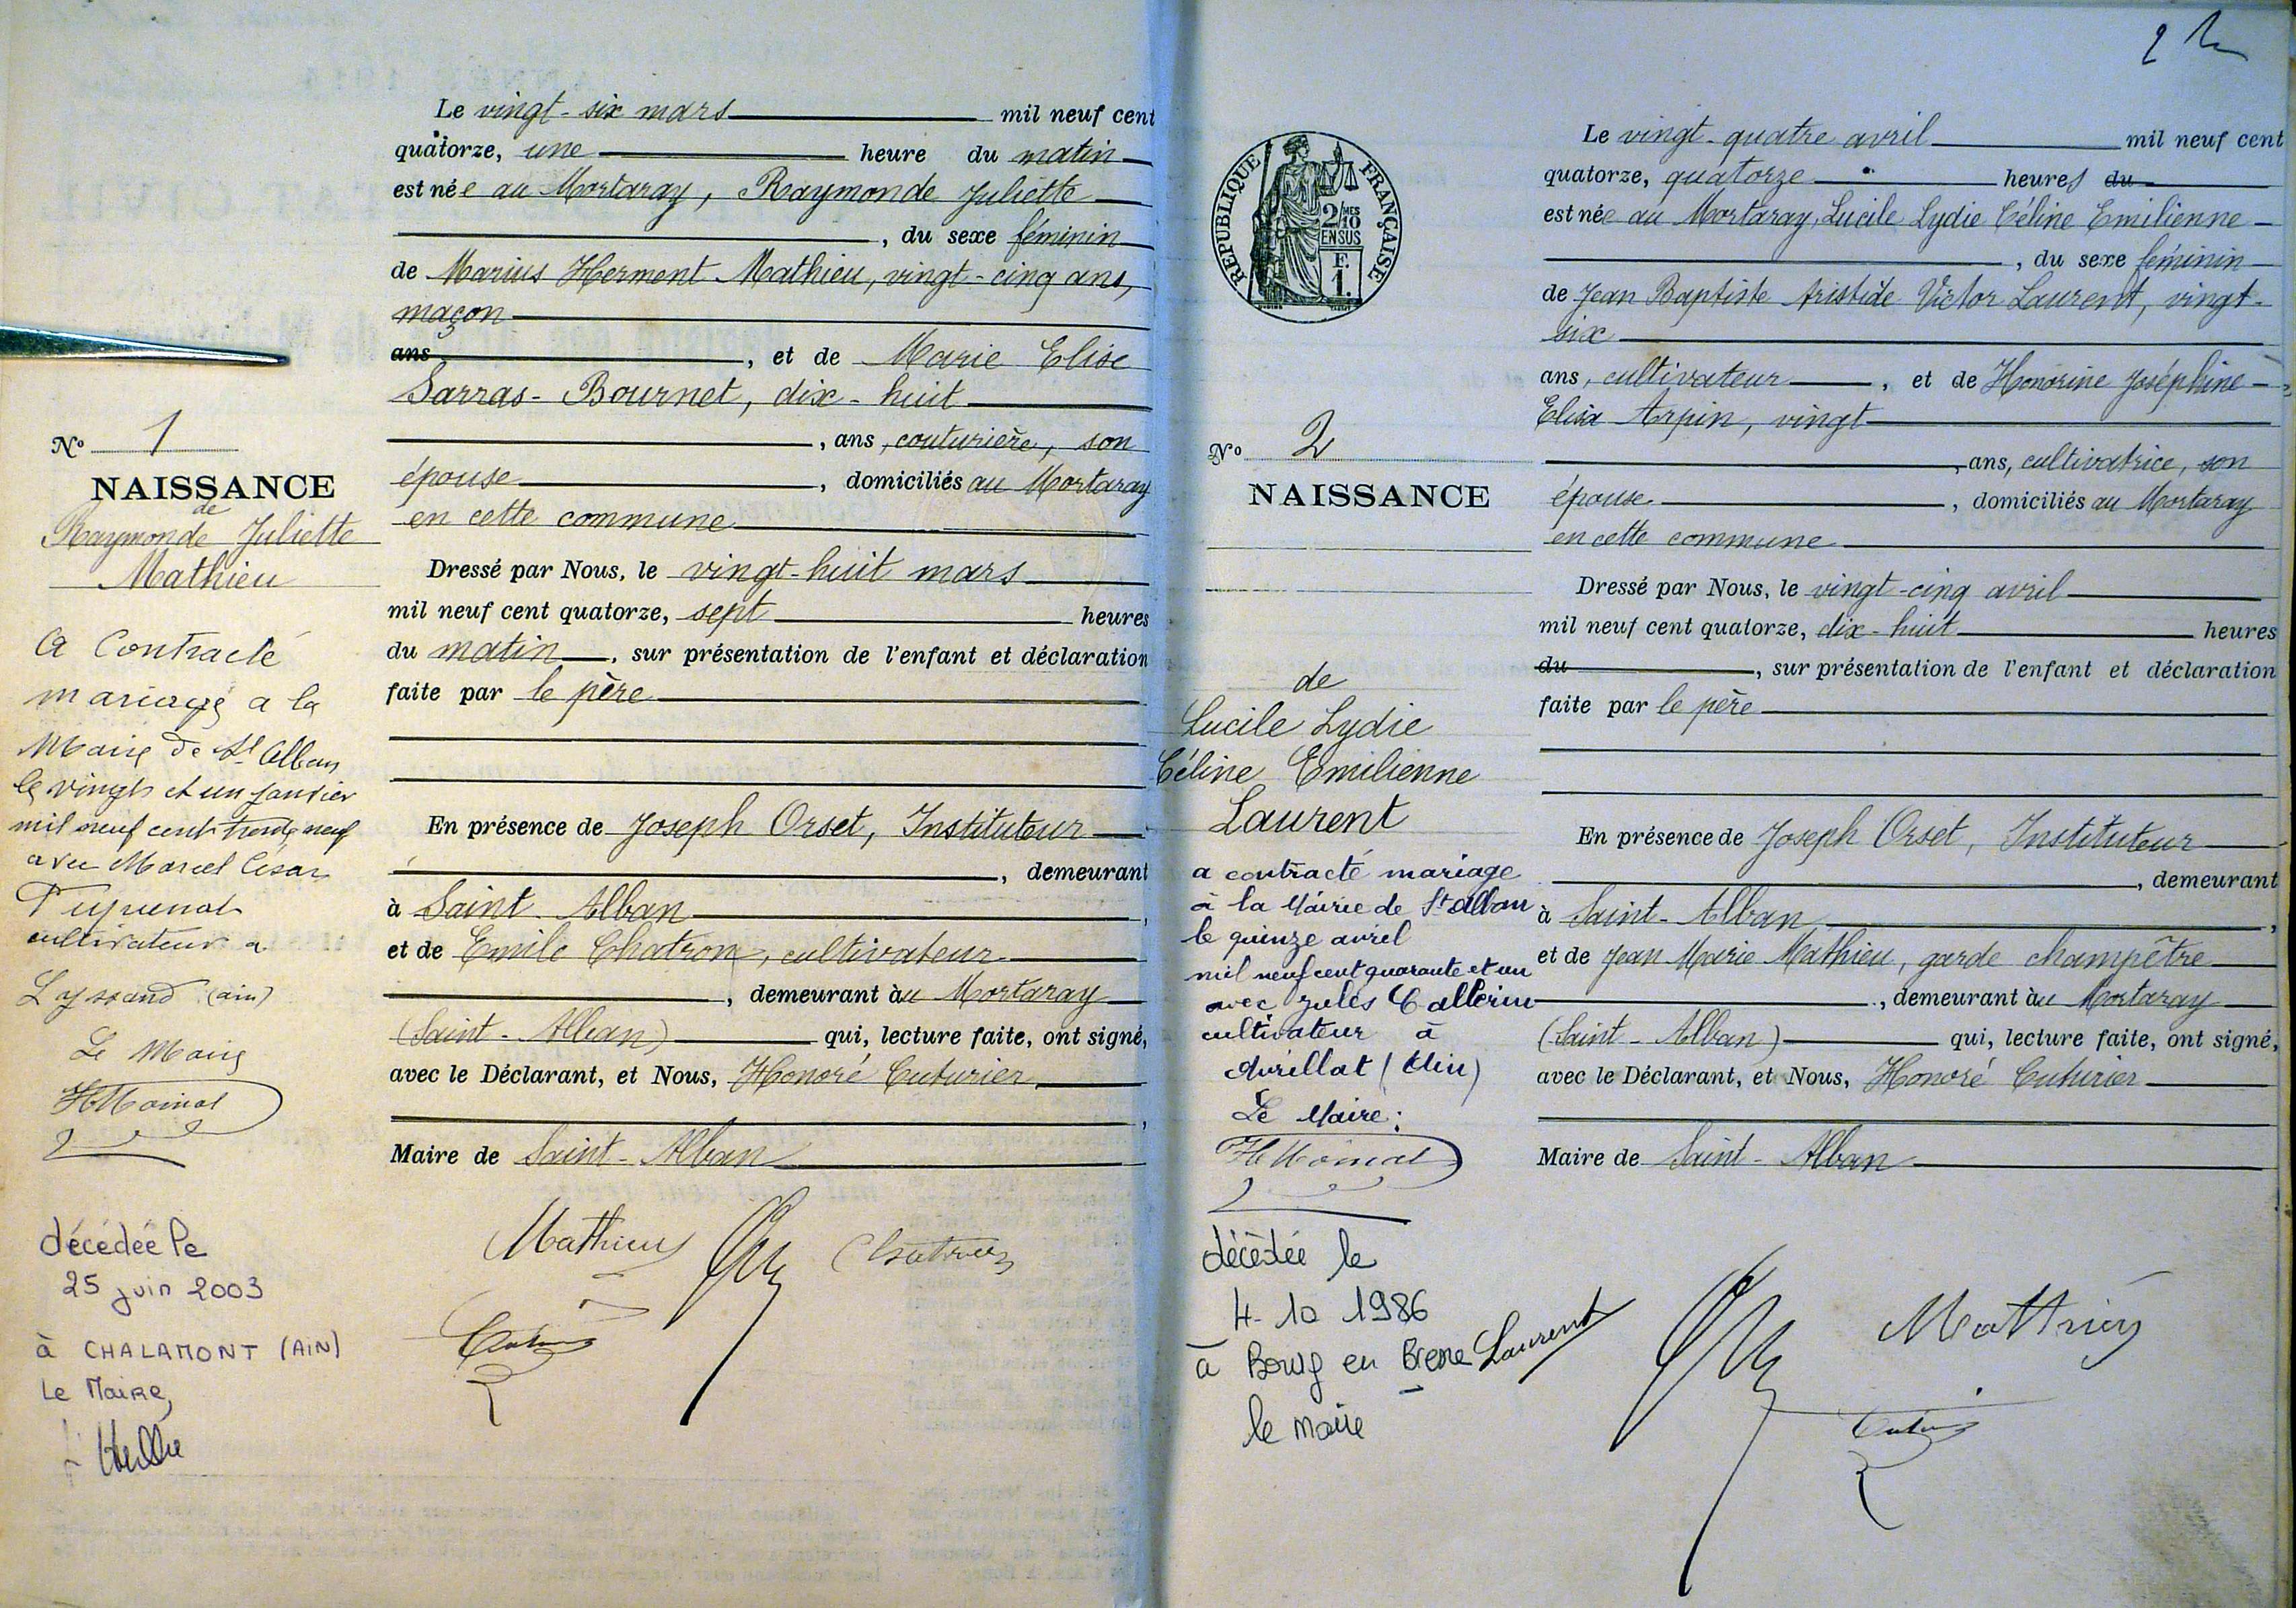 Le vingt-six mars mil neuf cent
quatorze, une heure du matin
est née au Mortaray, Raymonde Juliette
, du sexe féminin
de Marius Herment Mathieu, vingt-cinq ans,
maçon
ans, et de Marie Elise
Sarras-Bournet, dix-huit
, ans, couturière, son
épouse, domiciliés au Mortaray
en cette commune
Dressé par Nous, le vingt-huit mars
mil neuf cent quatorze, sept heures
du matin, sur présentation de l'enfant et déclaration
faite par le père
En présence de Joseph Orset, Instituteur
, demeurant
à Saint-Alban,
et de Emile Chatron, cultivateur
, demeurant àu Mortaray
(Saint-Alban) qui, lecture faite, ont signé,
avec le Déclarant, et Nous, Honoré Cuturier
,
Maire de Saint-Alban
Mathieu
N° 1
NAISSANCE
de
Raymonde Juliette
Mathieu
a Contracté
mariage a la
Mairie de St Alban
le vingt et un janvier
mil neuf cent trente neuf
avec Marcel César
cultivateur a
Loyssard (ain)
Le Maire
décédée le
25 juin 2003
à CHALAMONT (AIN)
Le Maire,
2
RÉPUBLIQUE FRANÇAISE
2/MES
10
EN SUS
F.
1.
Le vingt-quatre avril mil neuf cent
quatorze, quatorze heures du
est née au Mortaray, Lucile Lydie Céline Emilienne
, du sexe féminin
de Jean Baptiste Aristide Victor Laurent, vingt-
six
ans, cultivateur, et de Honorine Joséphine
Elisa Arpin, vingt
, ans, cultivatrice, son
épouse, domiciliés au Mortaray
en cette commune
Dressé par Nous, le vingt-cinq avril
mil neuf cent quatorze, dix-huit heures
du, sur présentation de l'enfant et déclaration
faite par le père
En présence de Joseph Orset, Instituteur
, demeurant
à Saint-Alban,
et de Jean Marie Mathieu, garde champêtre
, demeurant àu Mortaray
(Saint-Alban) qui, lecture faite, ont signé,
avec le Déclarant, et Nous, Honoré Cuturier
Maire de Saint-Alban
Laurent
Mathieu
N° 2
NAISSANCE
de
Lucile Lydie
Céline Emilienne
Laurent
a contracté mariage
à la Mairie de St Alban
le quinze avril
mil neuf cent quarante et un
avec Jules
cultivateur à
(Ain)
Le Maire:
décédée le
4-10 1986
à Bourg en Bresse
le maire